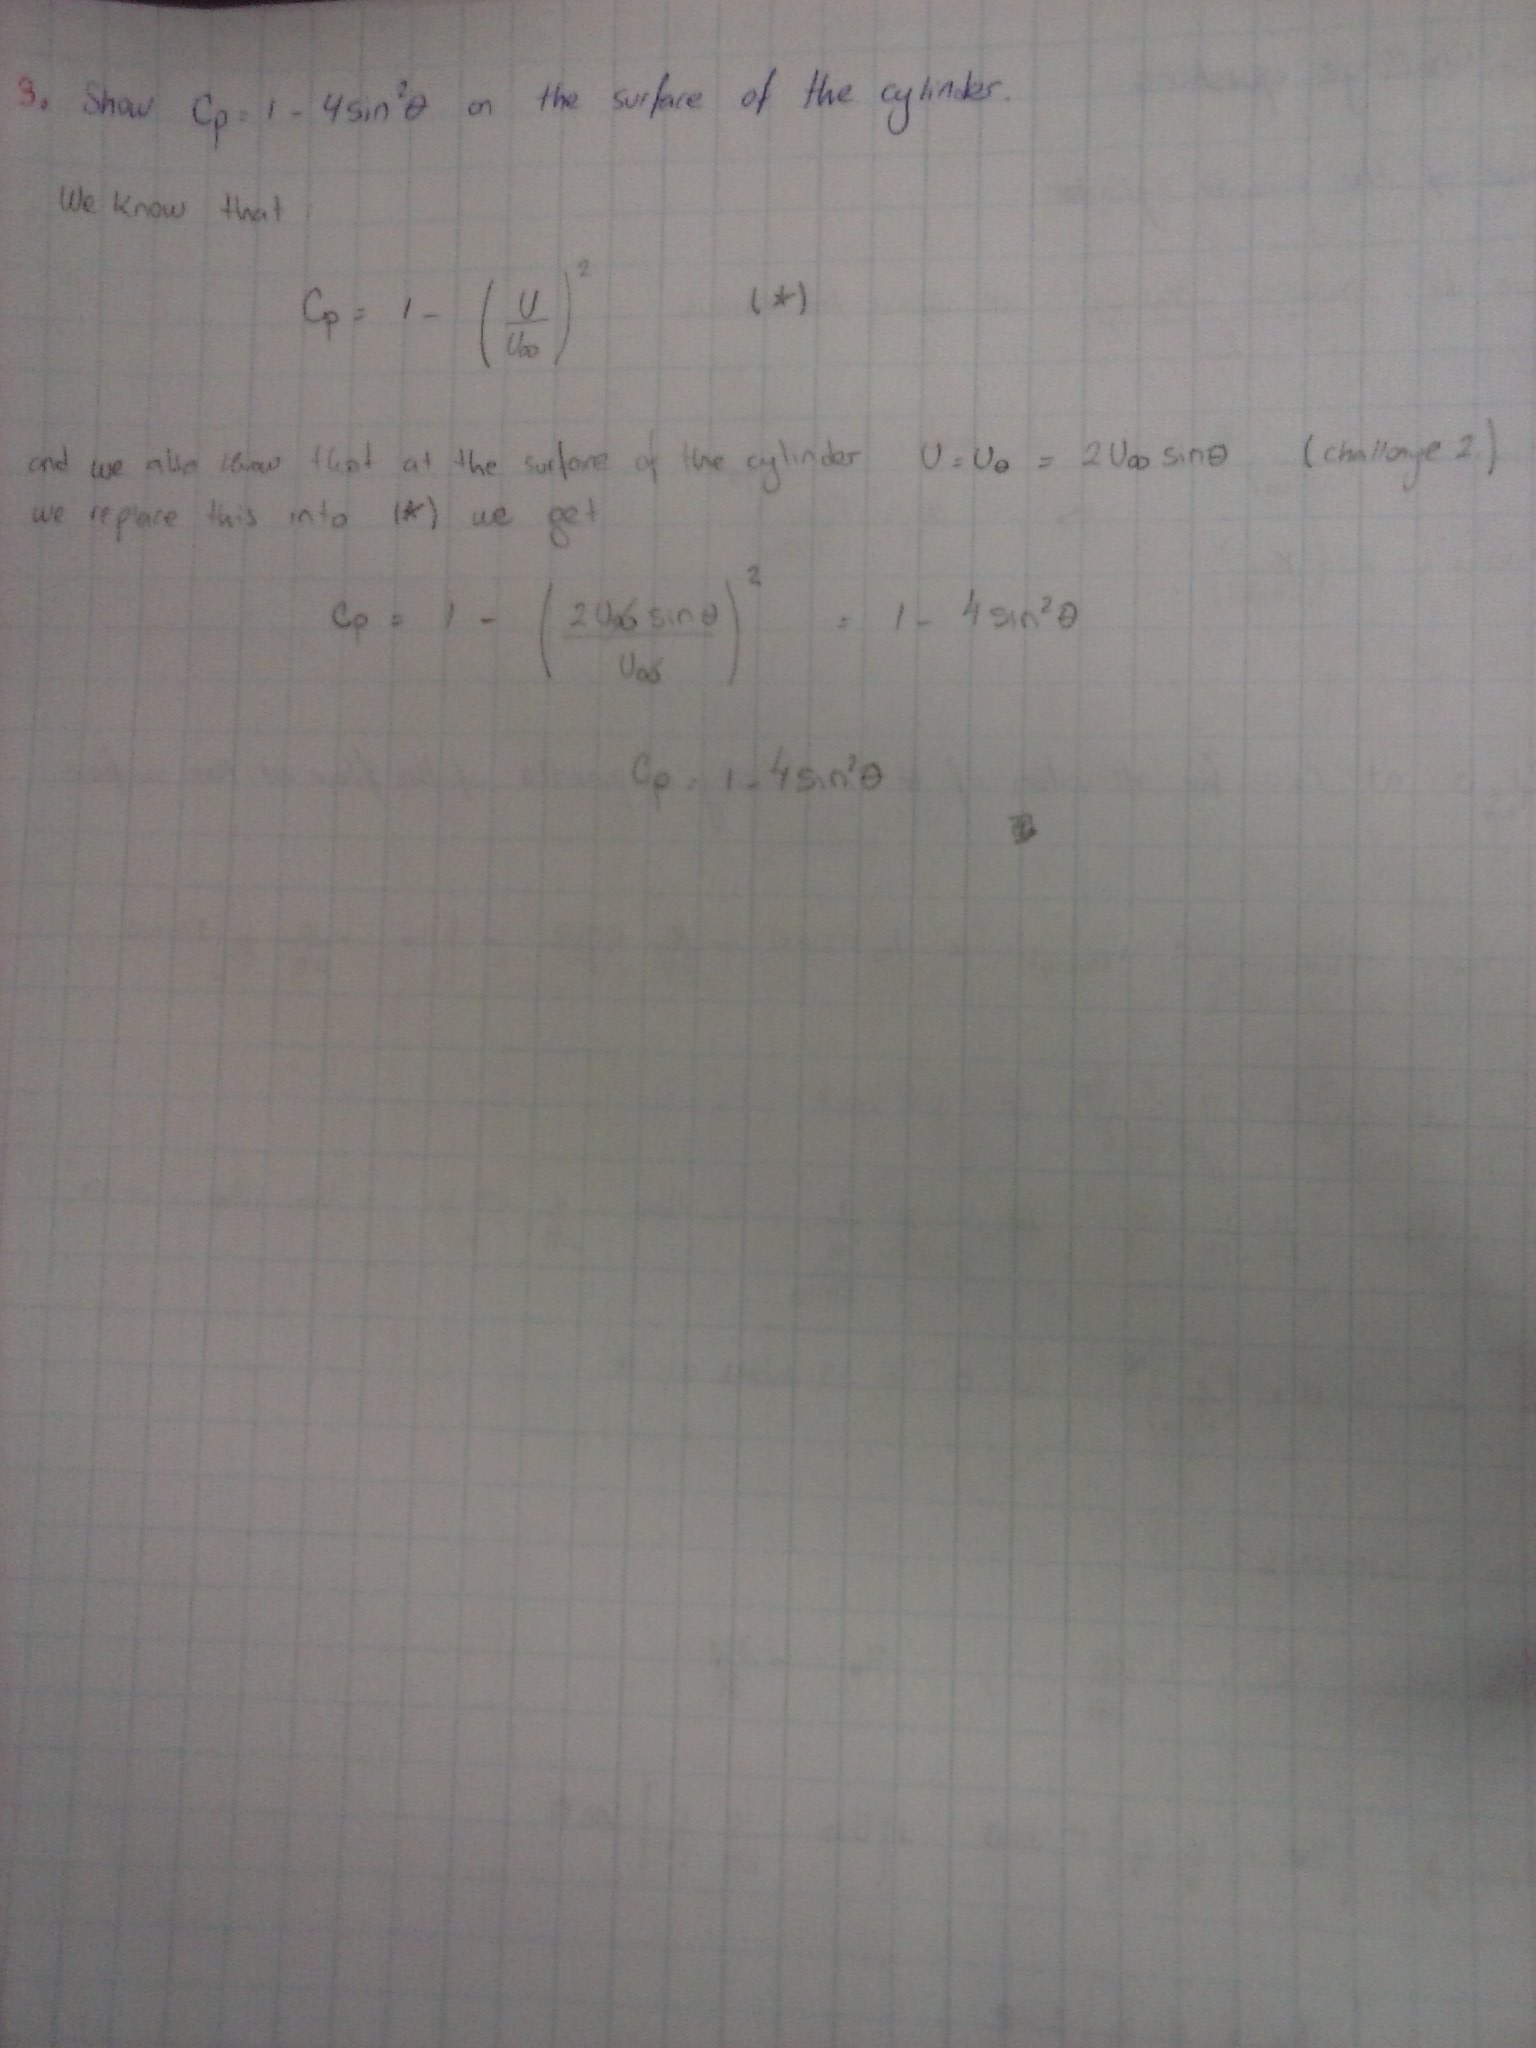 3. Show Cp = 1 - 4 sin²θ on the surface of the cylinder.
We know that
Cp = 1 - (U / U∞)² (*)
and we also know that at the surface of the cylinder U = Uθ = 2U∞ sinθ (challenge 2)
we replace this into (*) we get
Cp = 1 - (2U∞ sinθ / U∞)² = 1 - 4 sin²θ
Cp = 1 - 4 sin²θ